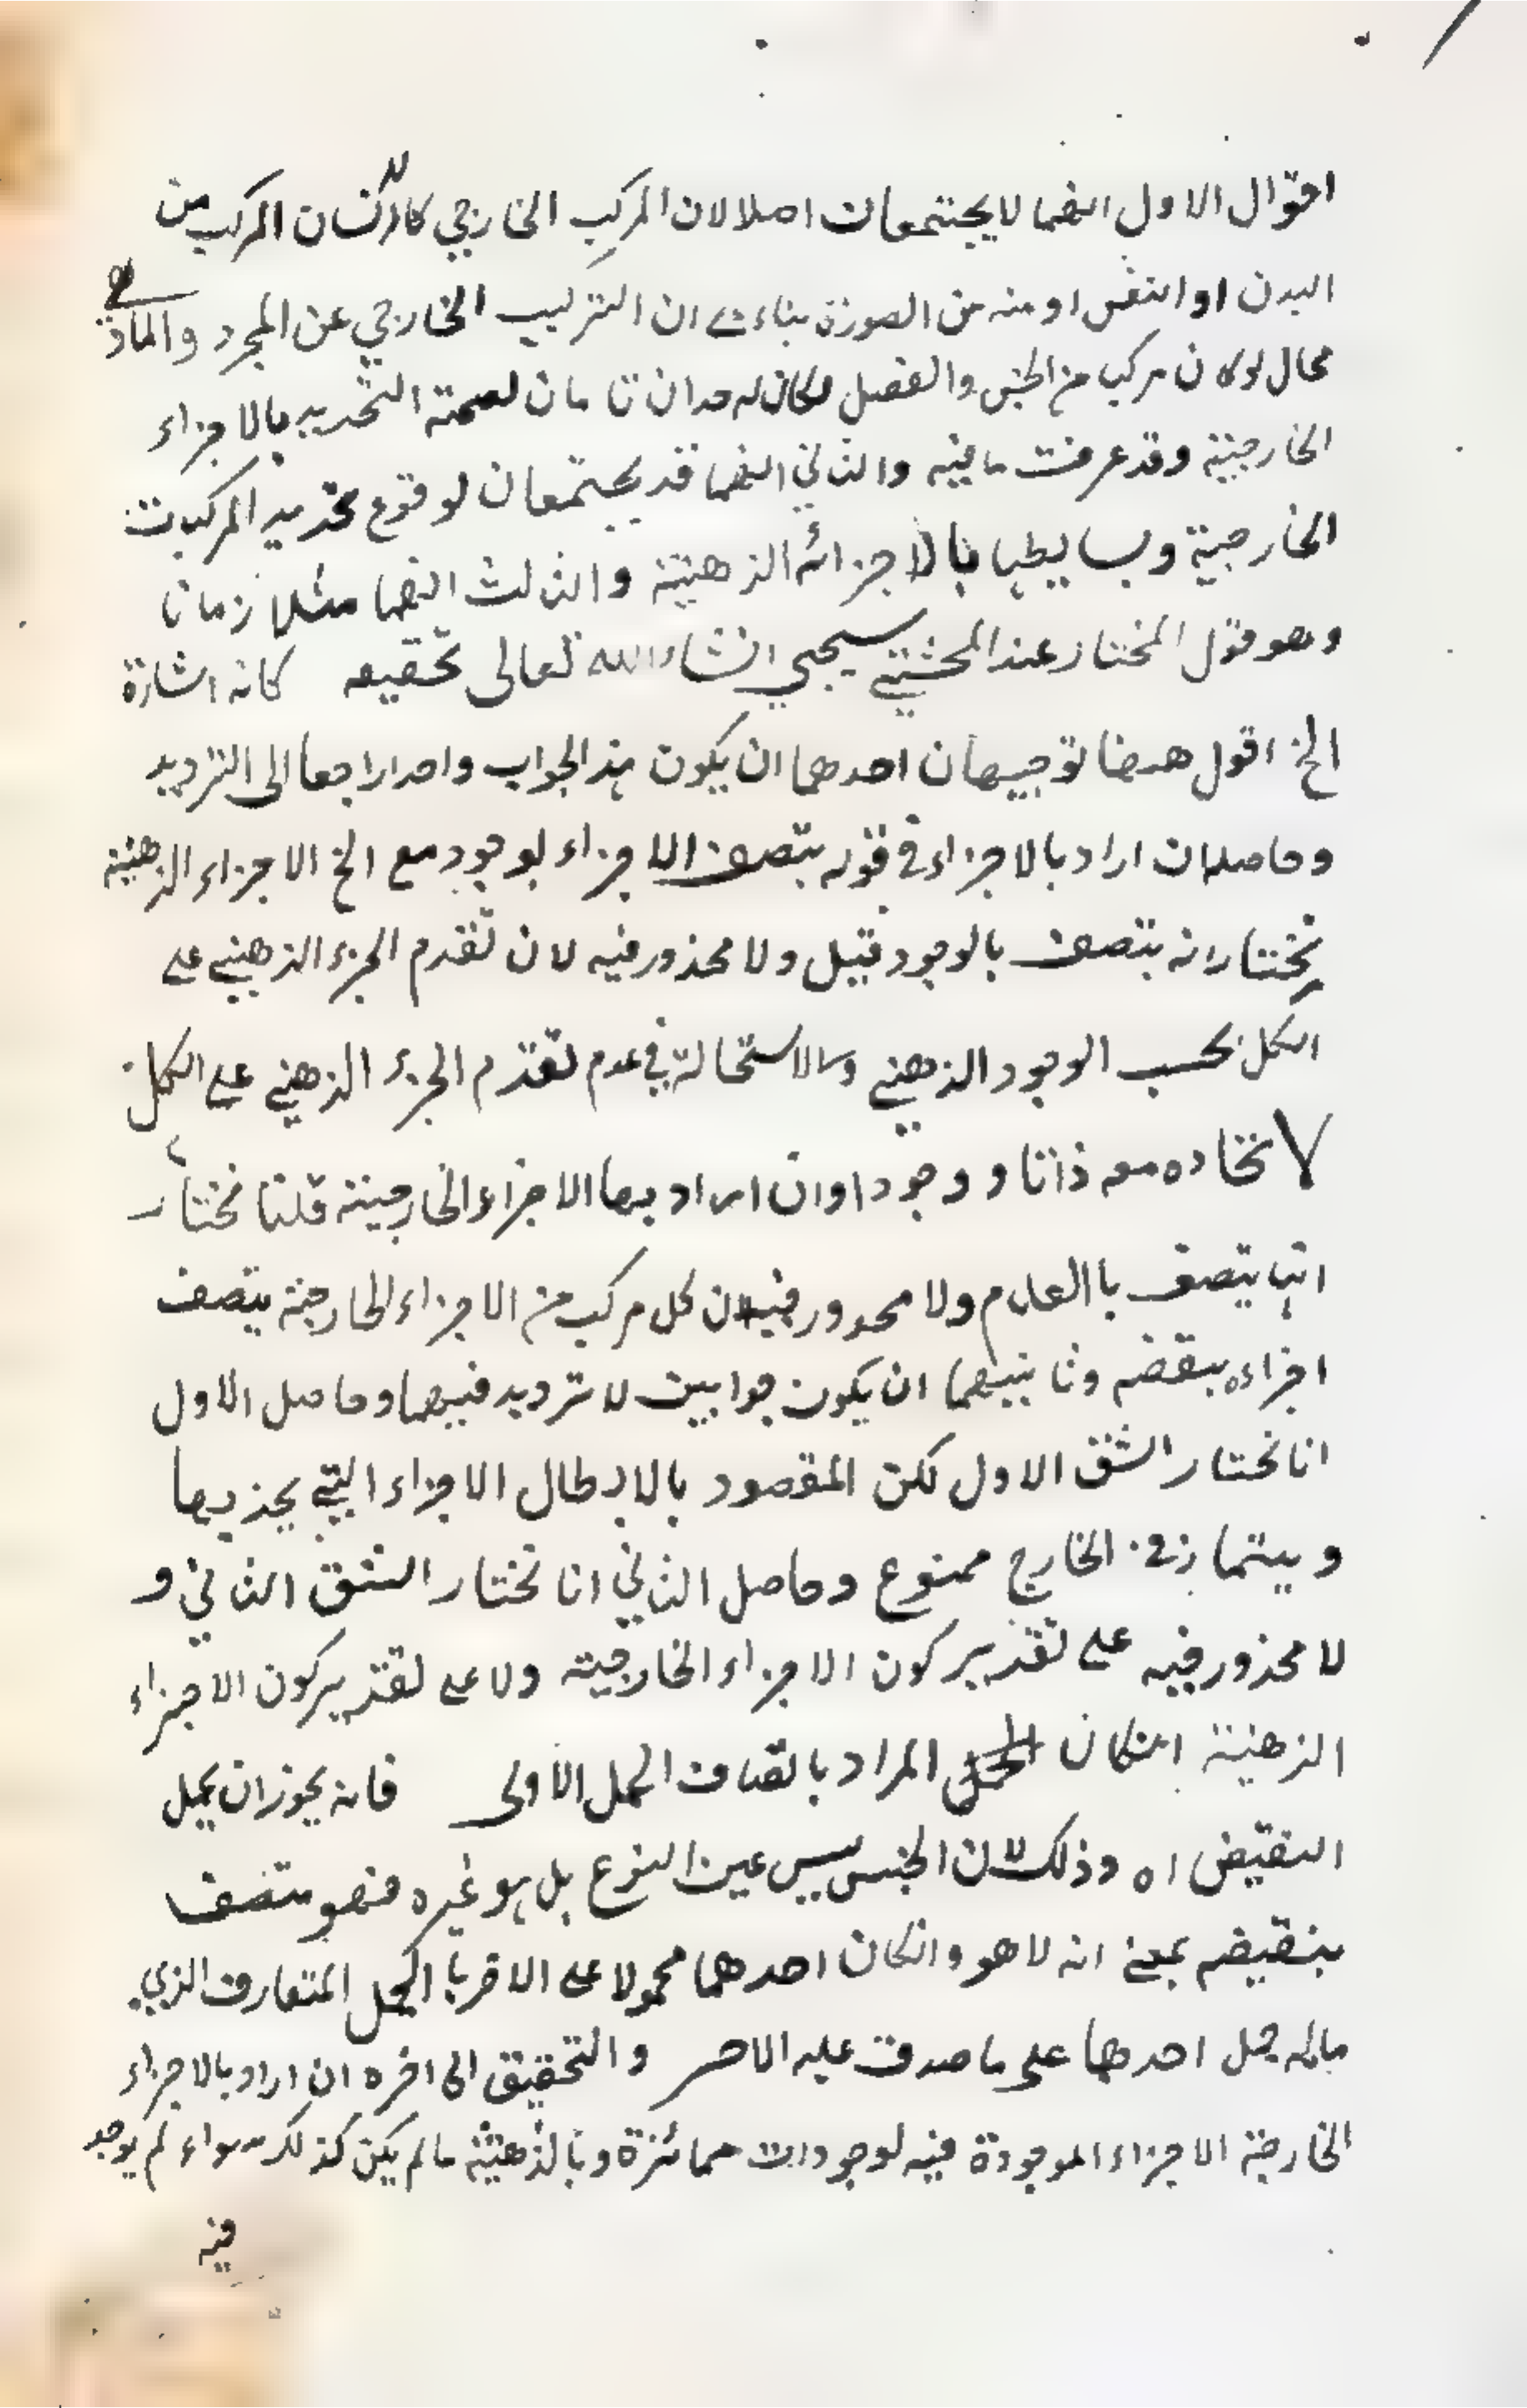 اقوال الاول انهما لا يجتمعان اصلا لان المركب الخارجي كالانسان المركب من
البدن او النفس او منه من الصورة بناء على ان التركيب الخارجي عن المجرد والمادي
محال لو كان مركب من الجنس والفصل لكان له حدان تامان لصحة التحديد بالاجزاء
الخارجية وقد عرفت ما فيه والثاني انهما قد يجتمعان لوقوع تحديد المركبات
الخارجية وبسايطها بالاجزائه الذهنية والثالث انهما متلازمان
وهو قول المختار عند المحشي سيجي انشاء الله تعالى تحقيقه كانه اشارة
الخ اقول ههنا توجيهان احدهما ان يكون هذا الجواب واحدا راجعا الى الترديد
وحاصله ان اراد بالاجزاء في قوله يتصف الاجزاء لوجود مع الخ الاجزاء الذهنية
نختار انه يتصف بالوجود قبل ولا محذور فيه لان تقدم الجزء الذهني على
الكل بحسب الوجود الذهني ولا استحالة في عدم تقدم الجزء الذهني على الكل
لاتحاده معه ذاتا ووجودا وان اراد بها الاجزاء الخارجية قلنا نختار
انها يتصف باالعدم ولا محدور فيه لان كل مركب من الاجزاء الخارجية يتصف
اجزاءه بنقضه وثانيهما ان يكون جوابين لا ترديد فيهما وحاصل الاول
انا نختار الشق الاول لكن المقصود بالابطال الاجزاء التي يجذبها
ويتماز في الخارج ممنوع وحاصل الثاني انا نختار الشق الثاني و
لا محذور فيه على تقدير كون الاجزاء الخارجية ولا على تقدير كون الاجزاء
الذهنية انكان المراد بالتصاف الحمل الاولى فانه يجوز ان يحمل
النقيض اه وذلك لان الجنس ليس عين النوع بل هو غيره فهو متصف
بنقيضه بمعنى انه لا هو وانكان احدهما محمولا على الاخر باالحمل المتعارف الذي
ماله حمل احدها على ما صدق عليه الاخر والتحقيق الى اخره ان اراد بالاجزاء
الخارجية الاجزاء الموجودة فيه لوجودات ممائزة وبالذهنية ما لم يكن كذلك سواء لم يوجد
فيه